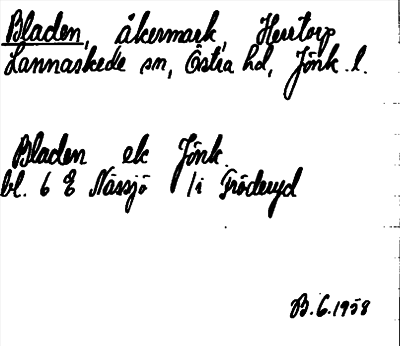 Bladen, åkermark, Hertorp
Lannaskede sn, Östra hd, Jönk. l.
Bladen ek Jönk.
bl. 6 E Nässjö /i Fröderyd
B.G. 1958